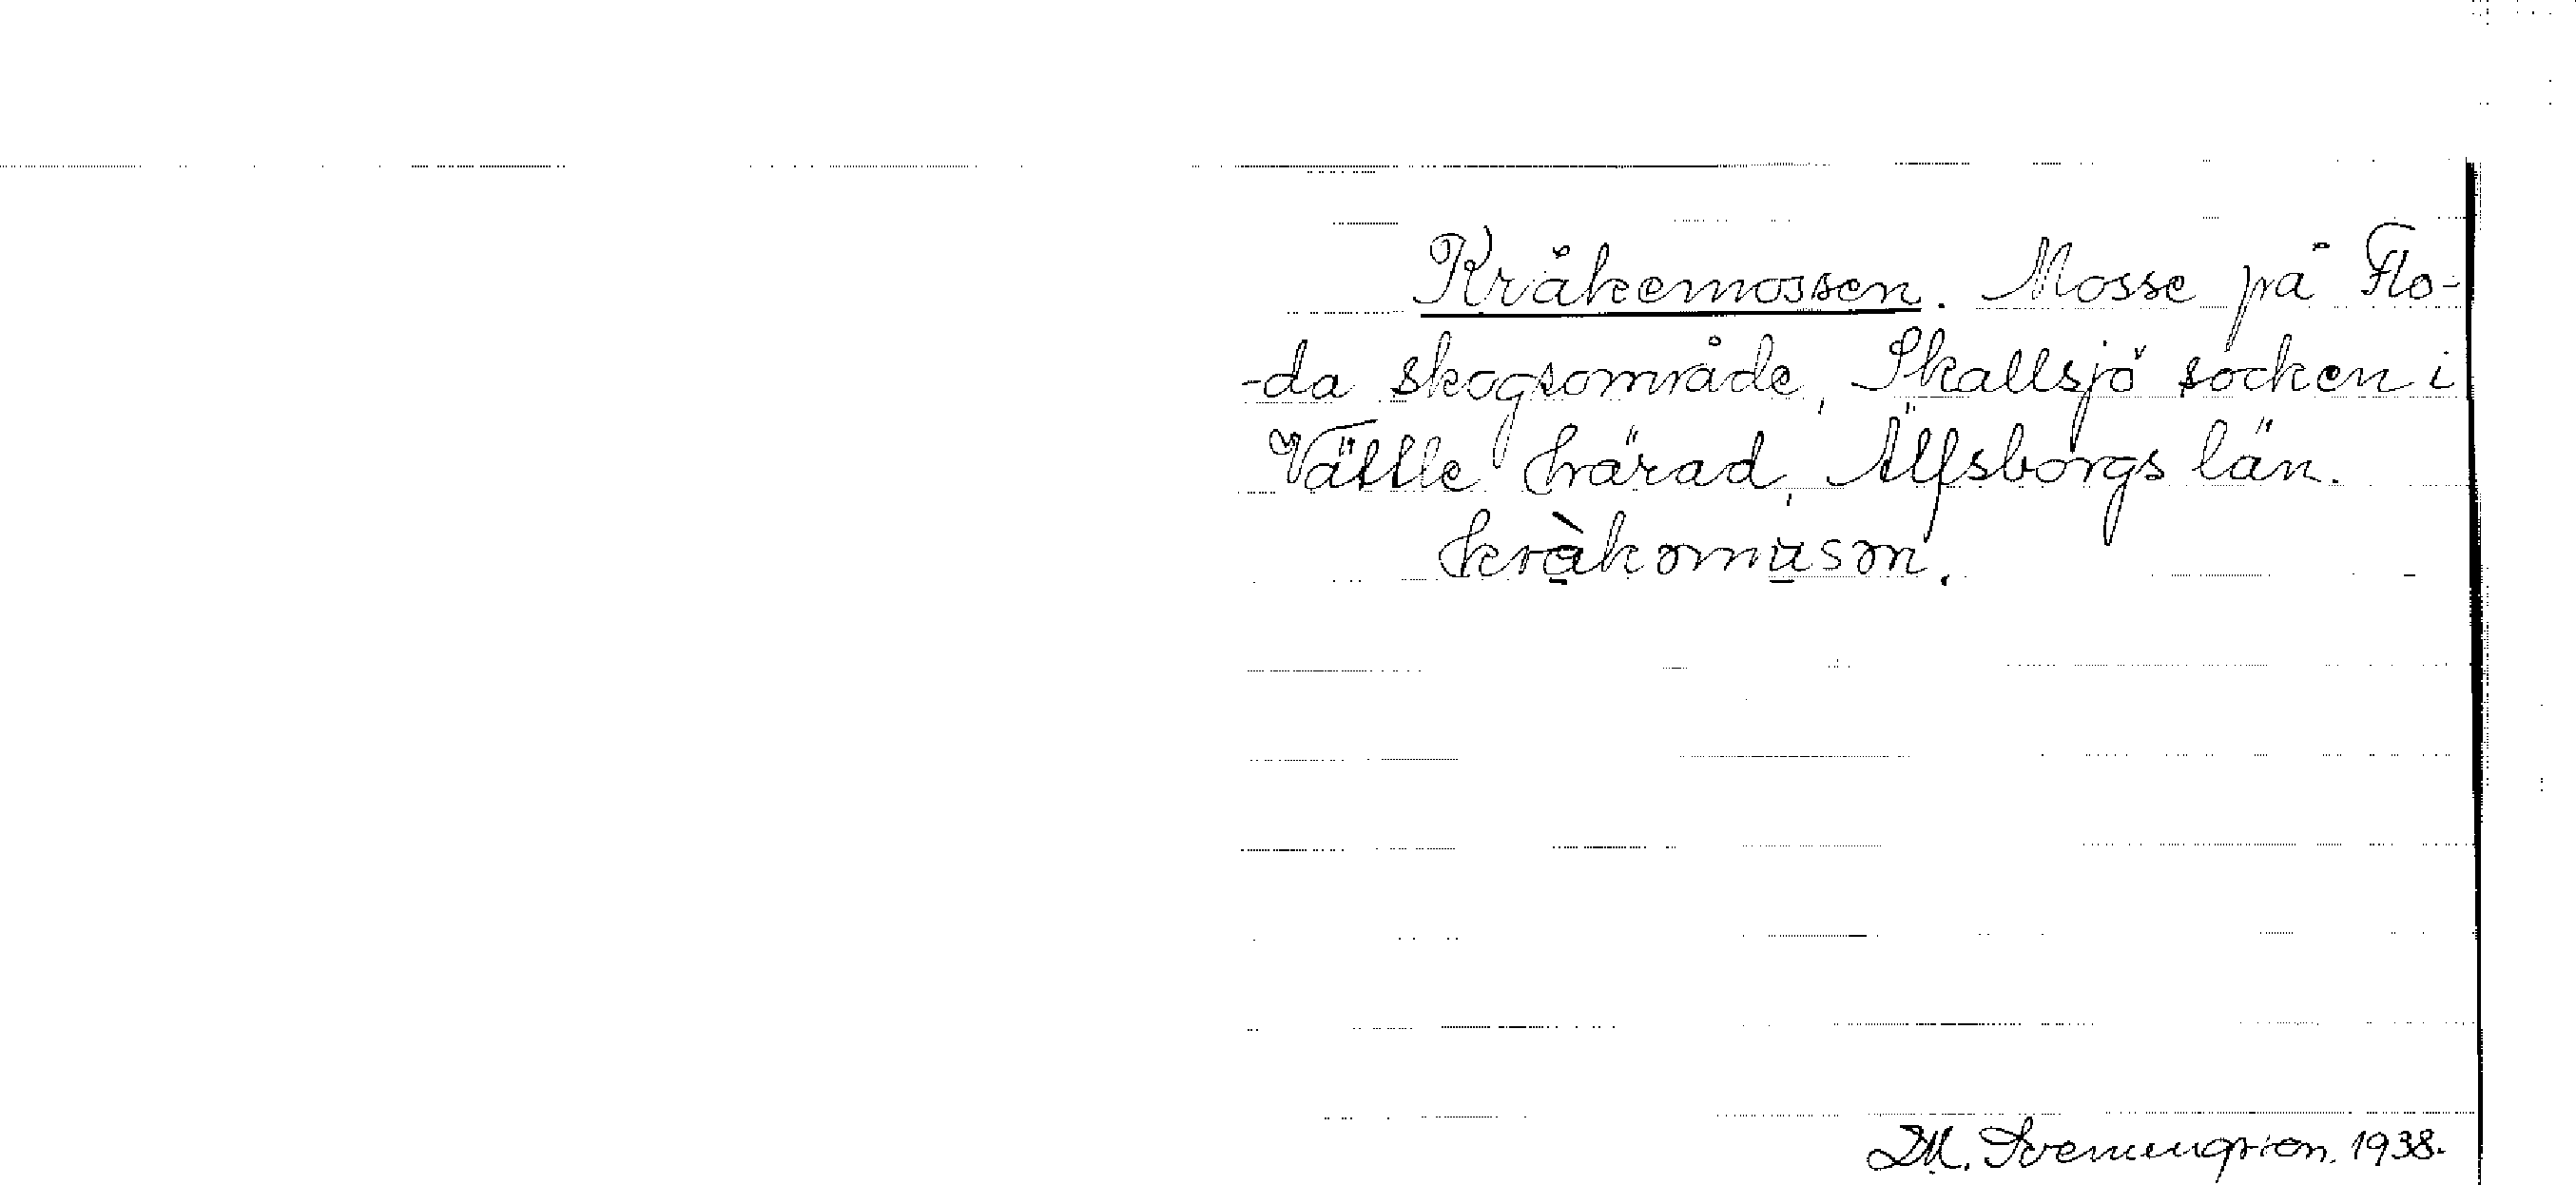 Kråkemossen. Mosse på Flo-
-da skogsområde, Skallsjö socken i
Vättle härad, Älfsborgs län.
kràkomuson.
D.M. Svenungsson. 1938.